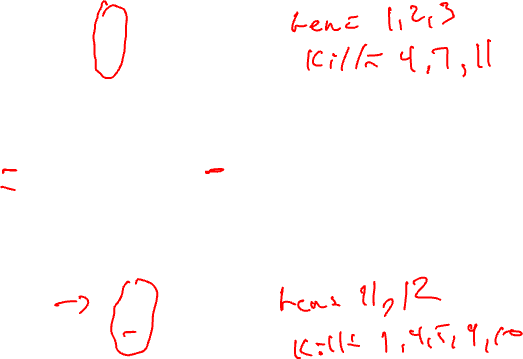 Gen= 1,2,3
Kill= 4,7,11
=
-
→
Gen= 11,12
Kill= 1,4,5,9,10